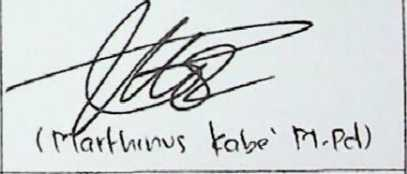 (Marthinus Kabe' M.Pd)